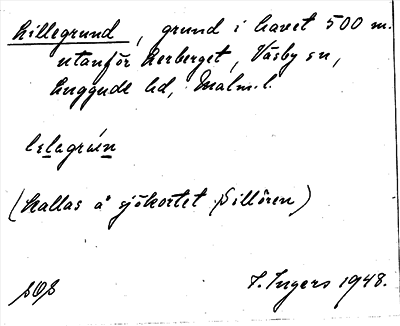 Lillegrund, grund i havet 500 m.
utanför Lerberget, Väsby sn,
Luggude hd, Malm. l.
lslagrúnn
(Kallas å sjökortet Sillören)
SOS I. Ingers 1948.